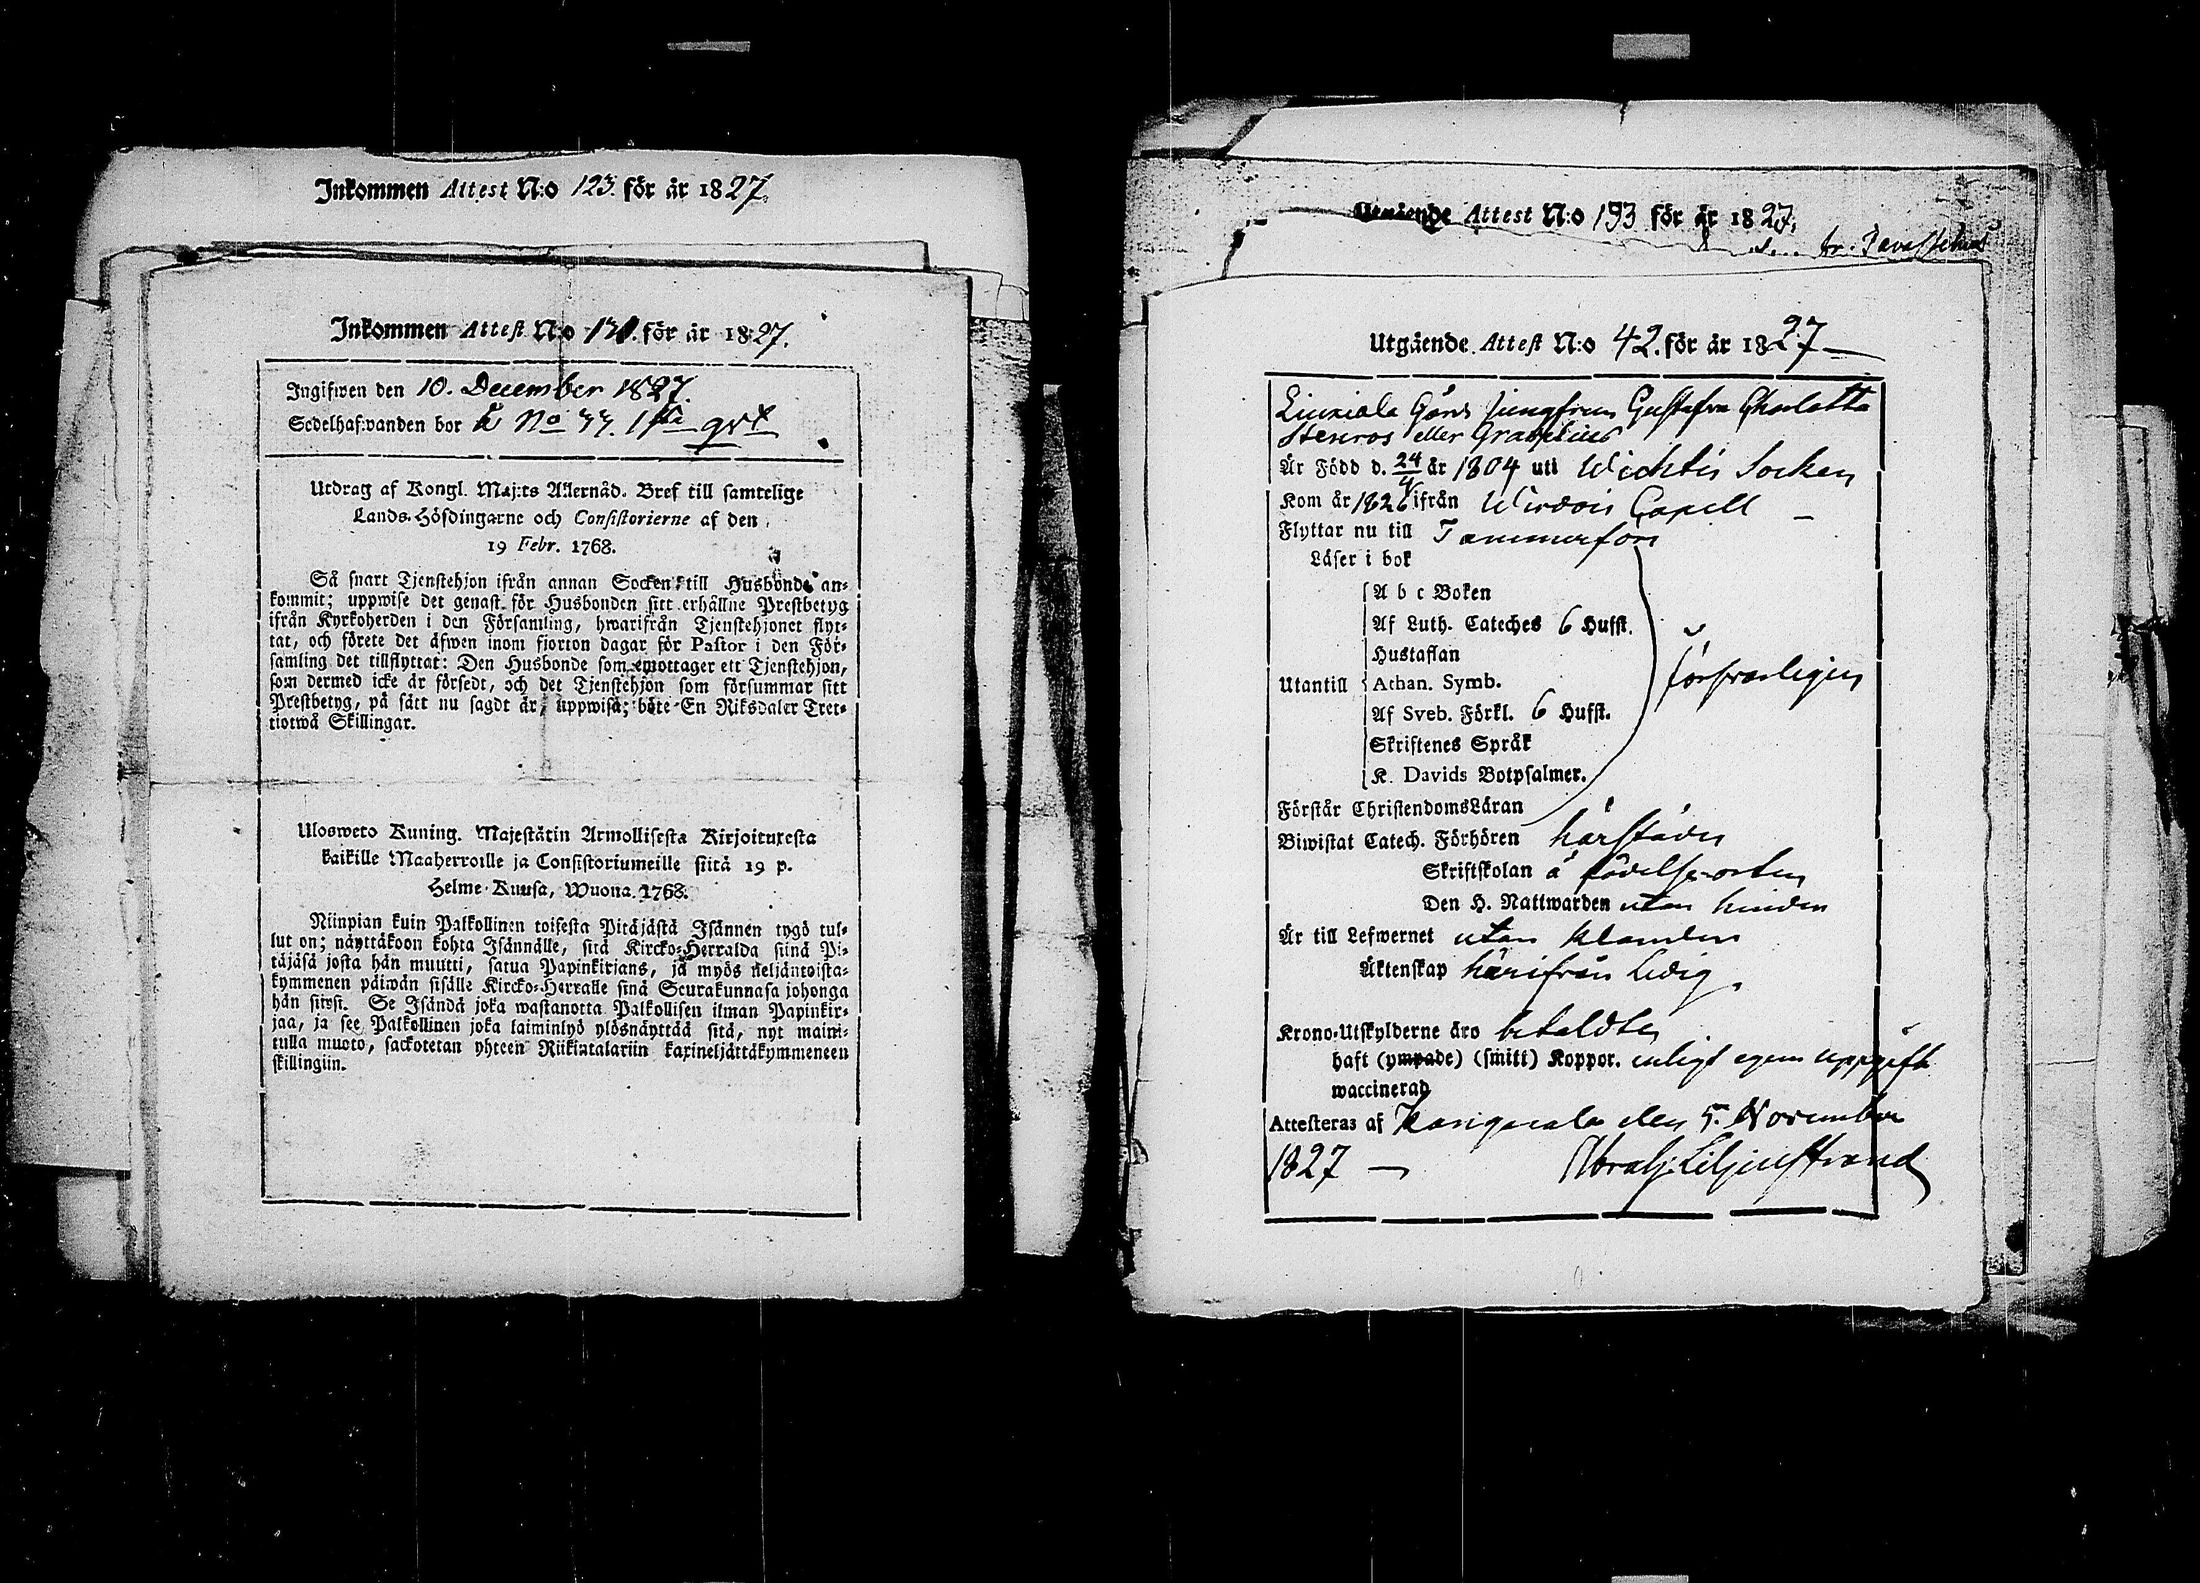 Inkommen Attest N:o 123. för år 1827.
Inkommen Attest N:o för år 1827.
Ingifwen den 10. December 1827.
Sedelhafwanden bor å No 1sta qvt
Utdrag af Kongl. Maj:ts Allernåd. Bref till samtelige
Lands-Höfdingarne och Consistorierne af den
19 Febr. 1768.
Så snart Tjenstehjon ifrån annan Socken till Husbonde an-
kommit; uppwise det genast för Husbonden sitt erhållne Prestbetyg
ifrån Kyrkoherden i den Församling, hwarifrån Tjenstehjonet flyt-
tat, och förete det äfwen inom fjorton dagar för Pastor i den För-
samling det tillflyttat: Den Husbonde som emottager ett Tjenstehjon,
som dermed icke är försedt, och det Tjenstehjon som försummar sitt
Prestbetyg, på sätt nu sagdt är, uppwisa; böte En Riksdaler Tret-
tiotwå Skillingar.
Ulosweto Kuning. Majestätin Armollisesta Kirjoituxesta
kaikille Maaherroille ja Consistoriumeille siitä 19 p.
Helme-Kuusa, Wuona 1768.
Niinpian kuin Palkollinen toisesta Pitäjästä Isännen tygö tul-
lut on; näyttäkoon kohta Isännälle, sitä Kircko-Herralda siinä Pi-
täjäsä josta hän muutti, saatua Papinkirjans, ja myös neljäntoista-
kymmenen päiwän sisälle Kircko-Herralle siinä Seurakunnasa johonga
hän siirsi. Se Isändä joka wastanotta Palkollisen ilman Papinkir-
jaa, ja see Palkollinen joka laiminlyö ylösnäyttää sitä, nyt maini-
tulla muoto, sackotetan yhteen Riikintalariin kaxineljättäkymmeneen
skillingiin.
Utgående Attest N:o 193 för år 1827.
Utgående Attest N:o 42. för år 1827
Liuxiala Gårds Jungfrun Gustafva Charlotta
Stenros eller
Är Född d. 24/4 år 1804 uti Wichtis Socken
Kom år 1826 ifrån Wirdois Capell
Flyttar nu till Tammerfors
Läser i bok
A b c Boken
Af Luth. Cateches 6 Hufst.
Hustaflan
Utantill Athan. Symb.
Af Sveb. Förkl. 6 Hufst.
Skriftenes Språk
K. Davids Botpsalmer.
försvarligen
Förstår ChristendomsLäran
Biwistat Catech. Förhören härstädes
Skriftskolan å födelseorten
Den H. Nattwarden utan hinder
Är till Lefwernet utan klander
Äktenskap härifrån Ledig
Krono-Utskylderne äro betaldte
haft (ympade) (smitt) Koppor. enligt egen uppgift
waccinerad
Attesteras af Kangasala den 5. November
1827 Abrah: Liljenstrand